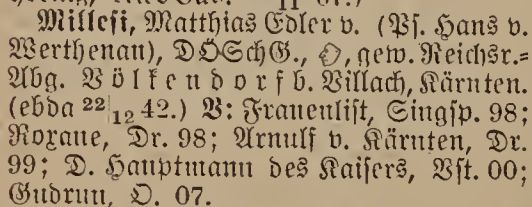 Millesi, Matthias Edler v. (Ps. Hans v.
Werthenau), DÖSchG., gew. Reichsr.=
Abg. Völkendorf b. Villach, Kärnten.
(ebda 22|12 42.) V: Frauenlist, Singsp. 98;
Roxane, Dr. 98; Arnulf v. Kärnten, Dr.
99; D. Hauptmann des Kaisers, Vst. 00;
Gudrun, O. 07.